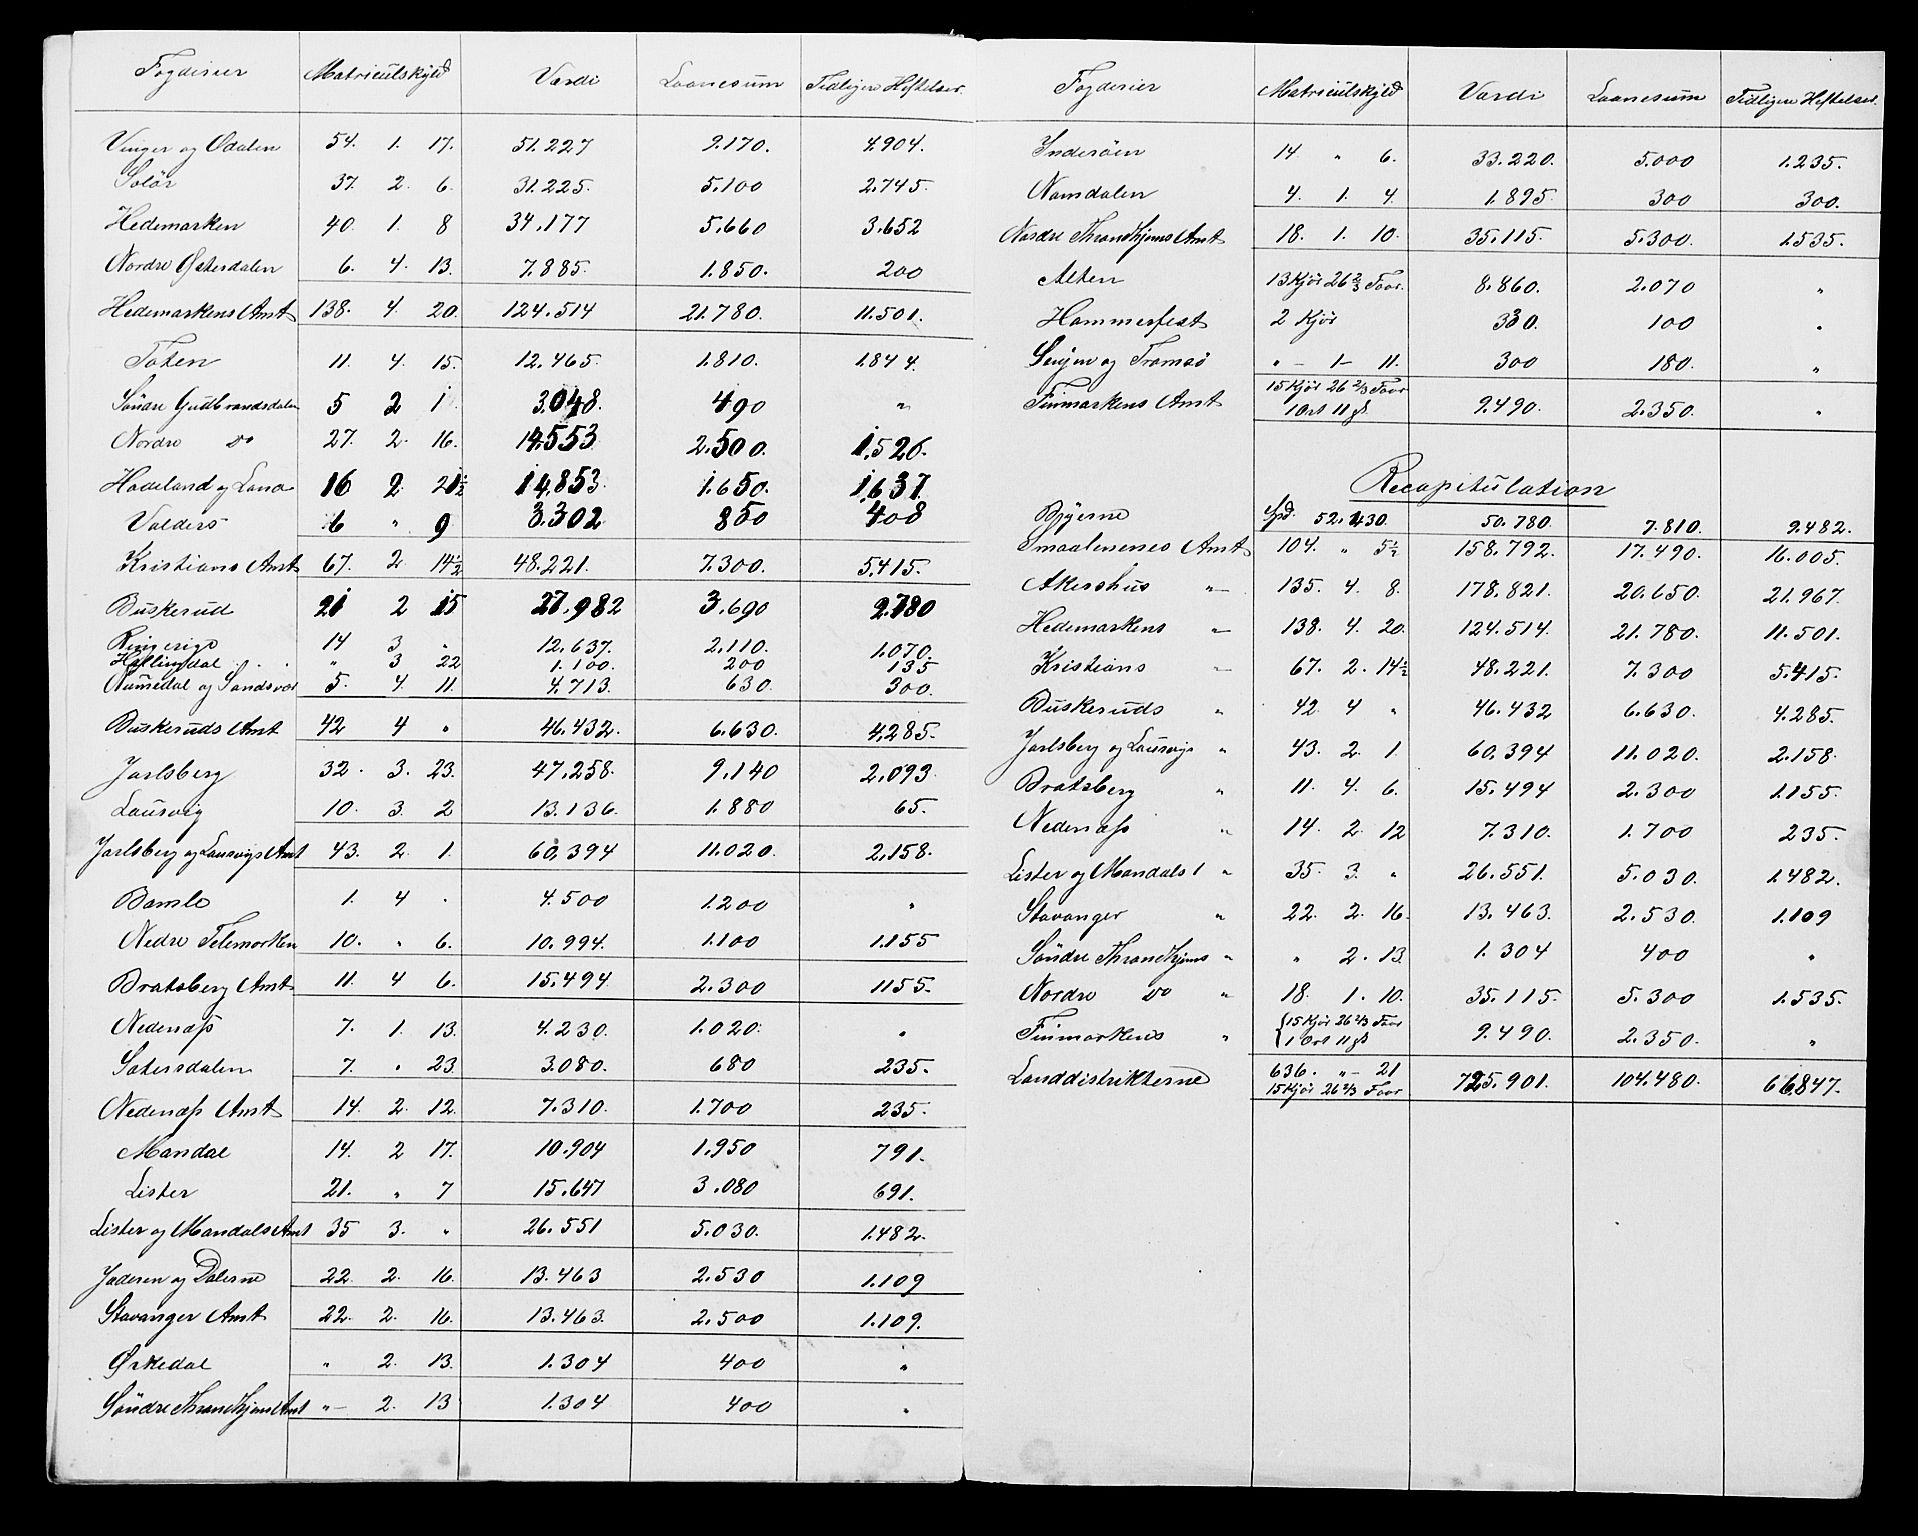 Fogderier Matriculskyld Værdi Laanesum Tidligere Heftelser.
Vinger og Odalen 54. 1. 17. 51.227 9.170. 4.904.
Solör 37. 2. 6. 31.225. 5.100 2.745.
Hedemarken 40. 1. 8 34.177 5.660 3.652
Nordre Østerdalen 6. 4. 13. 7.885. 1.850. 200
Hedemarkens Amt 138. 4. 20. 124.514 21.780. 11.501.
Toten 11. 4. 15. 12.465. 1.810. 1.844.
Söndre Gudbrandsdalen 5 2 1 3.048. 490 "
Nordre do 27. 2. 16. 14.553 2.500. 1.526.
Hadeland og Land 16 2. 21½ 14.853. 1.650. 1.637.
Valders 6 " 9 3.302 850 408
Kristians Amt 67. 2 14½ 48.221. 7.300. 5.415.
Buskerud 21 2 15 27.982 3.690 2.780
Ringerige 14 3 " 12.637. 2.110. 1.070.
Hallingdal " 3 22 1.100. 200 135
Numedal og Sandsvær 5. 4. 11. 4.713. 630. 300.
Buskeruds Amt 42 4 " 46.432. 6.630. 4.285.
Jarlsberg 32. 3. 23. 47.258. 9.140 2.093.
Laurvig 10. 3. 2 13.136. 1.880 65.
Jarlsberg og Laurvigs Amt 43. 2 1. 60.394 11.020. 2.158.
Bamle 1. 4 . 4.500 1.200 "
Nedre Telemarken 10. " 6. 10.994. 1.100 1.155
Bratsberg Amt 11. 4 6. 15.494 2.300 1155.
Nedenæs 7. 1. 13. 4.230. 1.020. "
Sætersdalen 7. " 23. 3.080. 680 235.
Nedenæs Amt 14. 2. 12. 7.310. 1.700 235.
Mandal 14. 2 17. 10.904 1.950 791.
Lister 21. " 7 15.647 3.080 691.
Lister og Mandals Amt 35 3. " 26.551 5.030. 1.482.
Jæderen og Dalerne 22. 2. 16. 13.463 2.530 1.109
Stavanger Amt 22. 2. 16. 13.463. 2.500 1.109.
Ørkedal " 2. 13. 1.304 400 "
Söndre Throndhjems Amt " 2. 13 1.304 400 "
Fogderier Matriculskyld Værdi Laanesum Tidligere Heftelser.
Inderöen 14 " 6. 33.220. 5.000 1.235.
Namdalen 4. 1. 4. 1.895. 300 300.
Nordre Throndhjems Amt 18. 1. 10. 35.115. 5.300. 1.535.
Alten 13 Kjör 26 2/3 Faar. 8.860. 2.070 "
Hammerfest 2 Kjör 330. 100 "
Senjen og Tromsö " – 1– 11. 300 180. "
Finmarkens Amt 15 Kjör 26 2/3 Faar
1 Ort 11 ß 9.490. 2.350. "
Recapitulation
Byerne Spd. 52.430. 50.780. 7.810. 9.482.
Smaalenenes Amt 104. " 5½ 158.792. 17.490. 16.005.
Akershus " 135. 4. 8. 178.821. 20.650. 21.967.
Hedemarkens " 138. 4. 20. 124.514. 21.780. 11.501.
Kristians " 67. 2. 14½ 48.221. 7.300 5.415.
Buskeruds " 42 4 " 46.432 6.630. 4.285.
Jarlsberg og Laurvigs " 43. 2. 1. 60.394 11.020. 2.158.
Bratsberg " 11. 4. 6. 15.494 2.300 1.155.
Nedenæs " 14. 2. 12 7.310. 1.700 235.
Lister og Mandals " 35. 3. " 26.551. 5.030. 1.482.
Stavanger " 22. 2. 16. 13.463. 2.530. 1.109
Söndre Throndhjems " " 2. 13. 1.304 400 "
Nordre do " 18. 1. 10. 35.115. 5.300 1.535.
Finmarkens " 15 Kjör 26 2/3 Faar
1 Ort 11 ß 9.490. 2.350. "
Landdistrikterne 636. " – 21
15 Kjör 26 2/3 Faar 725.901. 104.480. 66.847.